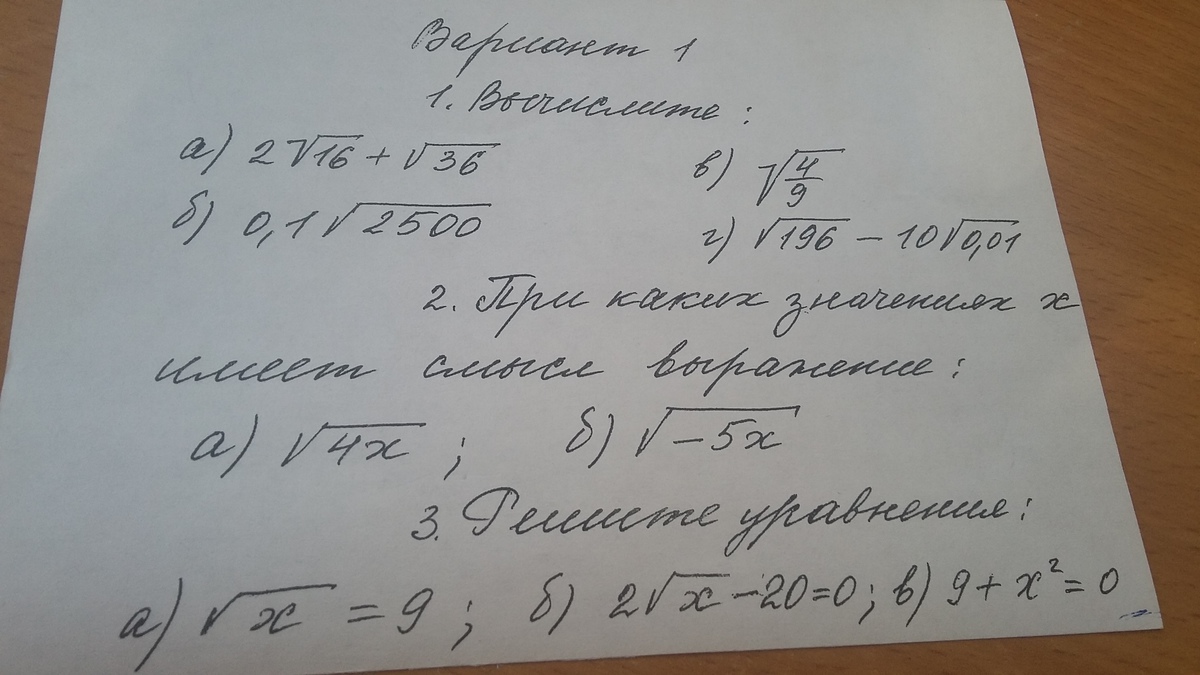 Вариант 1
1. Вычислите:
а) 2√16 + √36 в) √(4/9)
б) 0,1√2500 г) √196 − 10√0,01
2. При каких значениях x
имеет смысл выражение:
а) √4x ; б) √−5x
3. Решите уравнения:
а) √x = 9 ; б) 2√x − 20 = 0 ; в) 9 + x² = 0